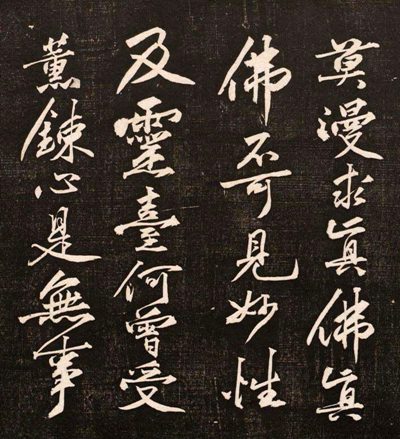 莫漫求真佛真
佛不可見妙性
及靈臺何曾受
薰鍊心是無事